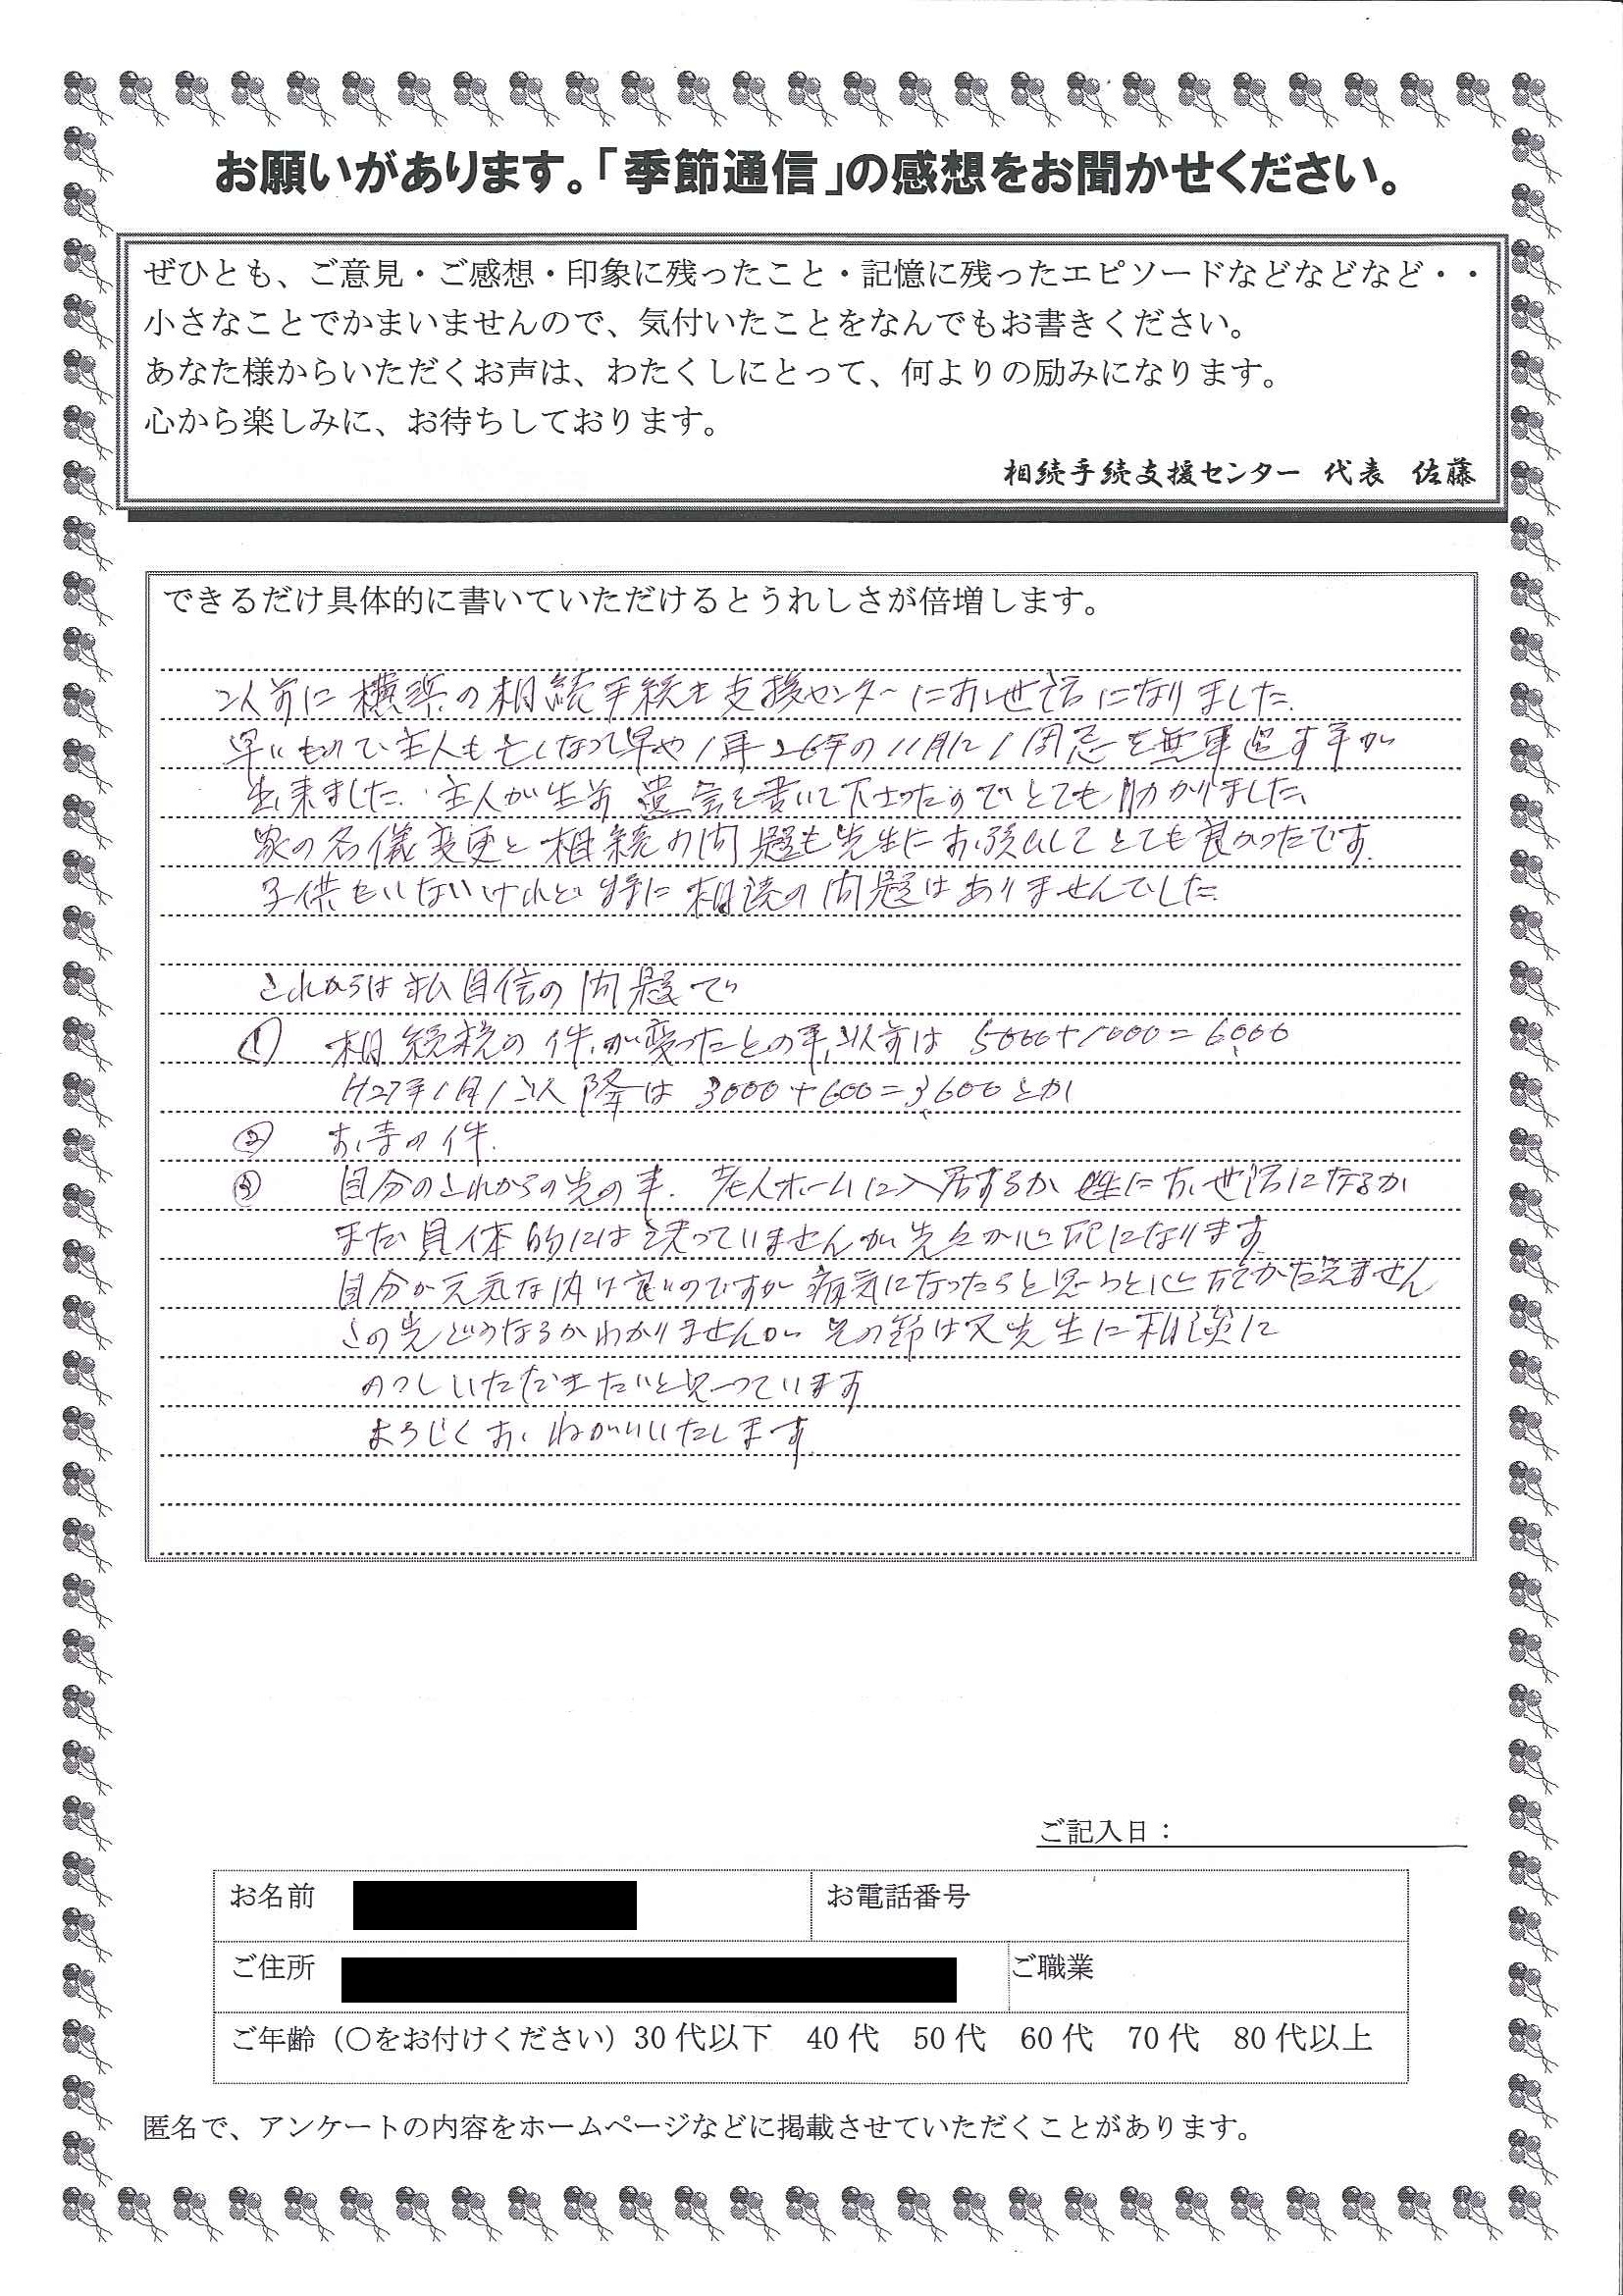 お願いがあります。「季節通信」の感想をお聞かせください。
ぜひとも、ご意見・ご感想・印象に残ったこと・記憶に残ったエピソードなどなどなど・・
小さなことでかまいませんので、気付いたことをなんでもお書きください。
あなた様からいただくお声は、わたくしにとって、何よりの励みになります。
心から楽しみに、お待ちしております。
相続手続支援センター 代表 佐藤
できるだけ具体的に書いていただけるとうれしさが倍増します。
以前に横浜の相続手続き支援センターにお世話になりました。
早いもので主人も亡くなって早や1年 26年の11月に1周忌を無事過す事が
出来ました。主人が生前 遺言を書いて下さったのでとても助かりました。
家の名儀変更と相続の問題も先生にお願いしてとても良かったです。
子供もいないけれど 特に相談の問題はありませんでした。
これからは私自信の問題で
① 相続税の件が変ったとの事、以前は 5000+1000=6000
H27年1月1以降は 3000+600=3600とか
② お寺の件.
③ 自分のこれからの先の事. 老人ホームに入居するか 姪にお世話になるか
まだ具体的には決っていませんが 先々が心配になります。
自分が元気な内は良いのですが 病気になったらと思うと心 がたえません
この先どうなるかわかりませんが その節は又先生に相談に
のっていただきたいと思っています
よろしくおねがいいたします。
ご記入日：
お名前
お電話番号
ご住所
ご職業
ご年齢（○をお付けください）30代以下 40代 50代 60代 70代 80代以上
匿名で、アンケートの内容をホームページなどに掲載させていただくことがあります。